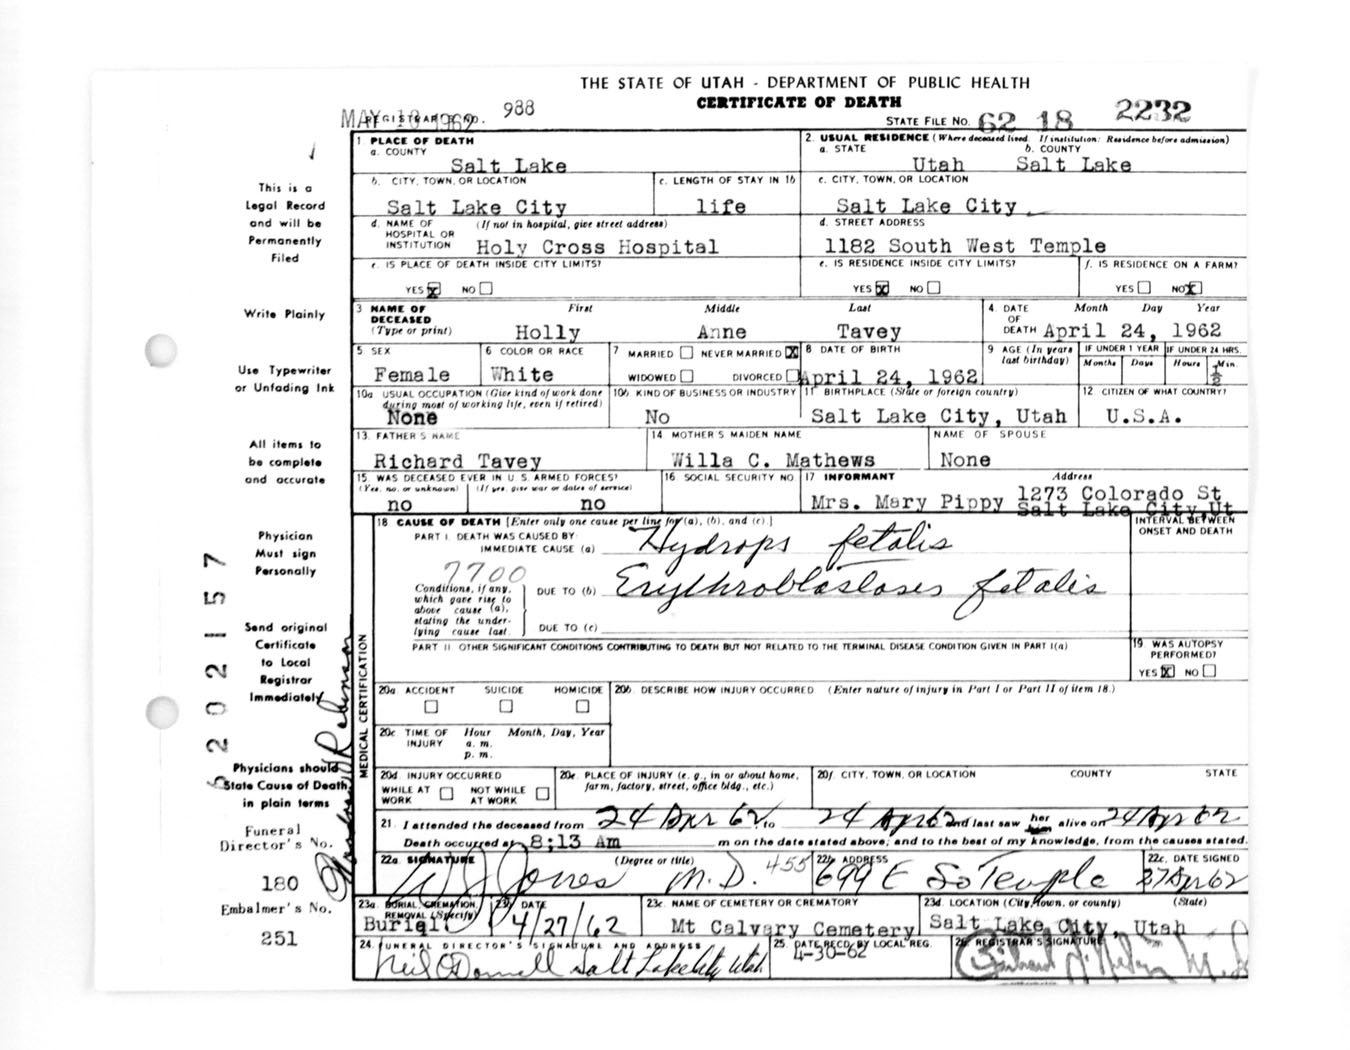 THE STATE OF UTAH - DEPARTMENT OF PUBLIC HEALTH
CERTIFICATE OF DEATH
MAY 10 1962 REGISTRAR'S NO. 988
STATE FILE NO. 62 18 2232
This is a
Legal Record
and will be
Permanently
Filed
Write Plainly
Use Typewriter
or Unfading Ink
All items to
be complete
and accurate
Physician
Must sign
Personally
Send original
Certificate
to Local
Registrar
Immediately
Physicians should
State Cause of Death
in plain terms
Funeral
Director's No.
180
Embalmer's No.
251
6202157
1 PLACE OF DEATH
a. COUNTY
Salt Lake
2. USUAL RESIDENCE (Where deceased lived. If institution: Residence before admission)
a. STATE b. COUNTY
Utah Salt Lake
b. CITY, TOWN, OR LOCATION
Salt Lake City
c. LENGTH OF STAY IN 1b
life
c. CITY, TOWN, OR LOCATION
Salt Lake City
d. NAME OF HOSPITAL OR INSTITUTION (If not in hospital, give street address)
Holy Cross Hospital
d. STREET ADDRESS
1182 South West Temple
e. IS PLACE OF DEATH INSIDE CITY LIMITS?
YES X NO
e. IS RESIDENCE INSIDE CITY LIMITS?
YES X NO
f. IS RESIDENCE ON A FARM?
YES NO X
3 NAME OF DECEASED (Type or print)
First Middle Last
Holly Anne Tavey
4. DATE OF DEATH Month Day Year
April 24, 1962
5. SEX
Female
6 COLOR OR RACE
White
7 MARRIED NEVER MARRIED X
WIDOWED DIVORCED
8 DATE OF BIRTH
April 24, 1962
9 AGE (In years last birthday)
IF UNDER 1 YEAR IF UNDER 24 HRS.
Months Days Hours Min.
1/2
10a USUAL OCCUPATION (Give kind of work done during most of working life, even if retired)
None
10b. KIND OF BUSINESS OR INDUSTRY
No
11 BIRTHPLACE (State or foreign country)
Salt Lake City, Utah
12 CITIZEN OF WHAT COUNTRY?
U.S.A.
13. FATHER'S NAME
Richard Tavey
14 MOTHER'S MAIDEN NAME
Willa C. Mathews
NAME OF SPOUSE
None
15. WAS DECEASED EVER IN U.S. ARMED FORCES?
(Yes, no, or unknown) (If yes, give war or dates of service)
no no
16 SOCIAL SECURITY NO
17 INFORMANT Address
Mrs. Mary Pippy 1273 Colorado St
Salt Lake City, Ut
MEDICAL CERTIFICATION
18 CAUSE OF DEATH [Enter only one cause per line for (a), (b), and (c).]
INTERVAL BETWEEN
ONSET AND DEATH
PART I. DEATH WAS CAUSED BY:
IMMEDIATE CAUSE (a) Hydrops fetalis
7700
Conditions, if any, which gave rise to above cause (a), stating the underlying cause last.
DUE TO (b) Erythroblastoses fetalis
DUE TO (c)
PART II. OTHER SIGNIFICANT CONDITIONS CONTRIBUTING TO DEATH BUT NOT RELATED TO THE TERMINAL DISEASE CONDITION GIVEN IN PART I(a)
19. WAS AUTOPSY
PERFORMED?
YES X NO
20a ACCIDENT SUICIDE HOMICIDE
20b. DESCRIBE HOW INJURY OCCURRED (Enter nature of injury in Part I or Part II of item 18.)
20c TIME OF INJURY Hour Month, Day, Year
a. m.
p. m.
20d. INJURY OCCURRED
WHILE AT WORK NOT WHILE AT WORK
20e. PLACE OF INJURY (e. g., in or about home, farm, factory, street, office bldg., etc.)
20f. CITY, TOWN, OR LOCATION COUNTY STATE
21. I attended the deceased from 24 Apr 62 to 24 Apr 62 and last saw her him alive on 24 Apr 62
Death occurred at 8:13 Am m on the date stated above; and to the best of my knowledge, from the causes stated.
22a. SIGNATURE (Degree or title)
W J Jones M.D. 455
22b. ADDRESS
699 E So Temple
22c. DATE SIGNED
27 Apr 62
23a. BURIAL, CREMATION, REMOVAL (Specify)
Burial
23b DATE
4/27/62
23c. NAME OF CEMETERY OR CREMATORY
Mt Calvary Cemetery
23d. LOCATION (City, town, or county) (State)
Salt Lake City, Utah
24. FUNERAL DIRECTOR'S SIGNATURE AND ADDRESS
Neil O'Donnell Salt Lake City, Utah
25. DATE REC'D. BY LOCAL REG.
4-30-62
26. REGISTRAR'S SIGNATURE